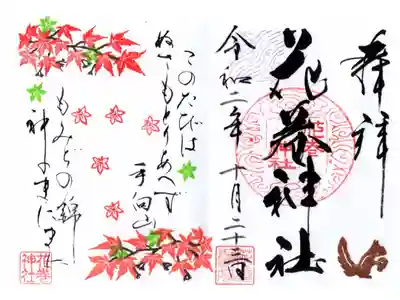 奉拝
神社
令和二年十月二十三日
このたびは
ぬさもとりあへず
手向山
もみぢの錦
神のまにまに
神社